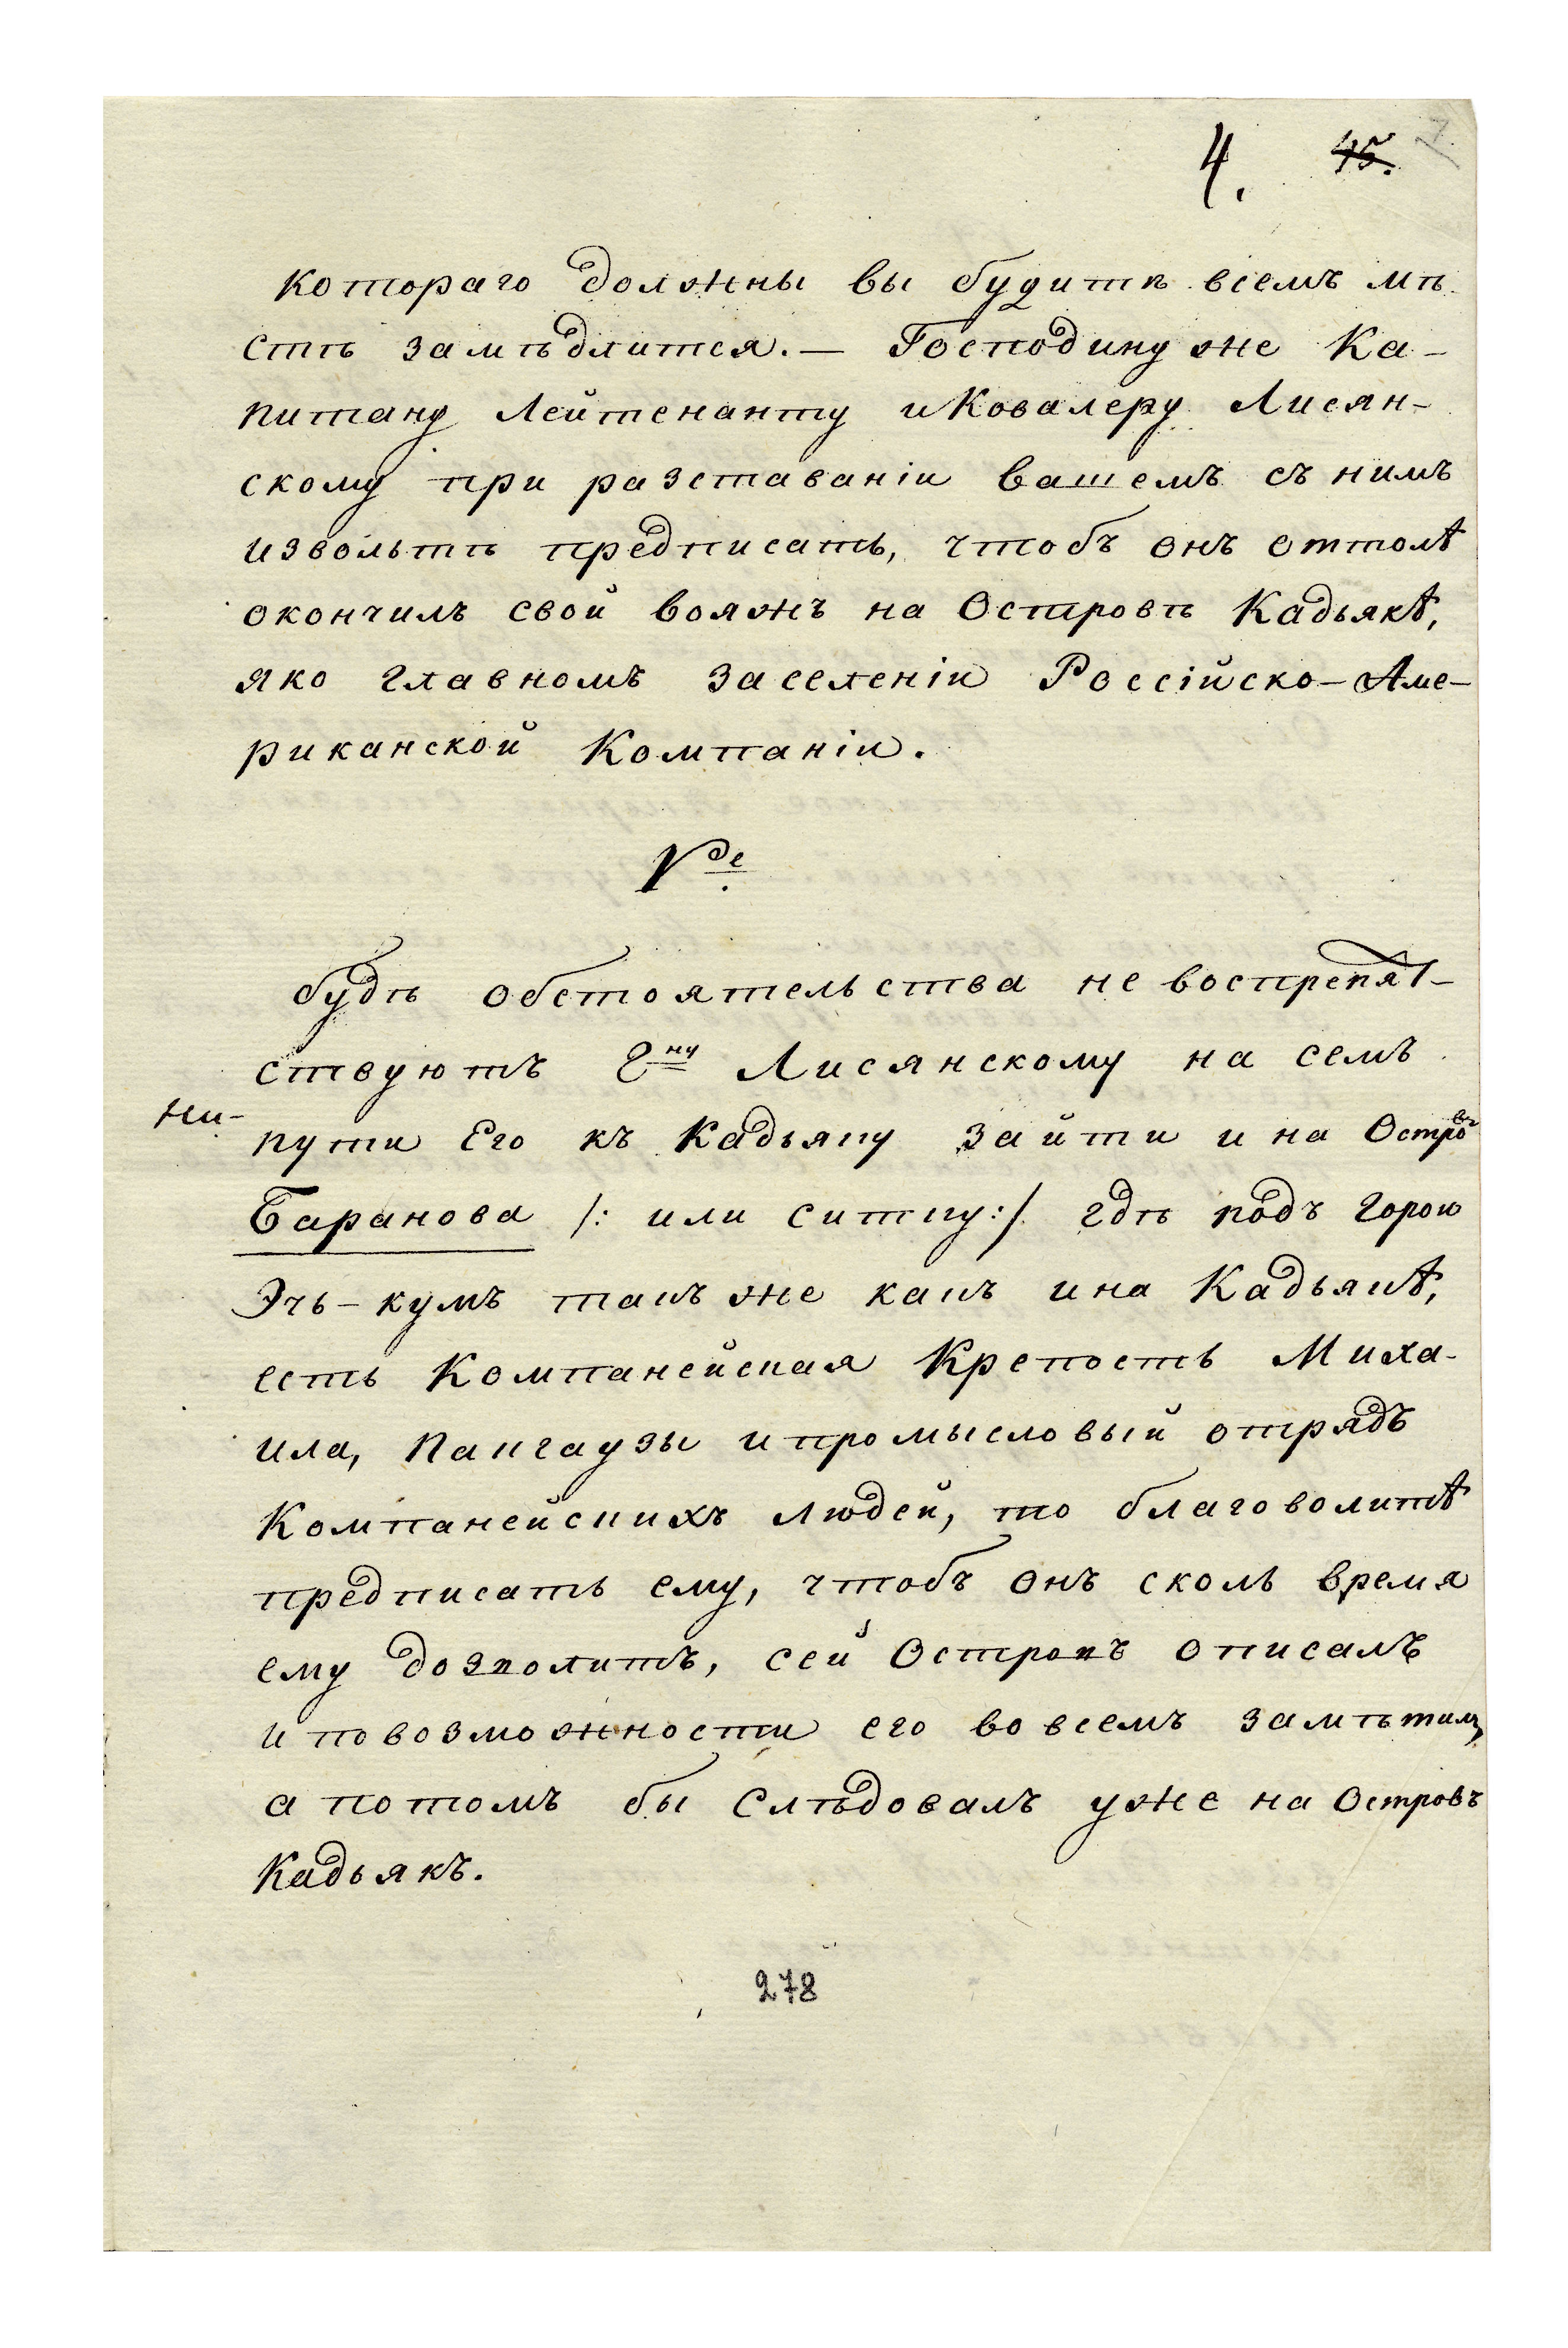 4. 45. 7.
котораго должны вы будитѣ всемъ мѣ-
стѣ замѣдлится. — Господину же Ка-
питану Лейтенанту и Ковалеру Лисян-
скому при разставаніи вашемъ съ нимъ
извольтѣ предписать, чтобъ онъ оттолѣ
окончилъ свой вояжъ на Островѣ Кадьякѣ,
яко главномъ заселеніи Россійско-Аме-
риканской Компаніи.
V.де
будѣ обстоятельства не воспрепят-
ствуютъ Гну Лисянскому на семъ
ни-
пути Его къ Кадьяку зайти и на Островъ
Баранова /: или ситку:/ гдѣ подъ горою
Эчь-кумъ такъ же какъ и на Кадьякѣ,
есть Компанейская Крепость Миха-
ила, Пакгаузы и промысловый отрядъ
Компанейскихъ людей, то благоволитѣ
предписать ему, чтобъ онъ сколь время
ему дозволитъ, сей Островъ описалъ
и повозможности его вовсемъ замѣтилъ,
а потомъ бы Слѣдовалъ уже на Островъ
Кадьякъ.
278